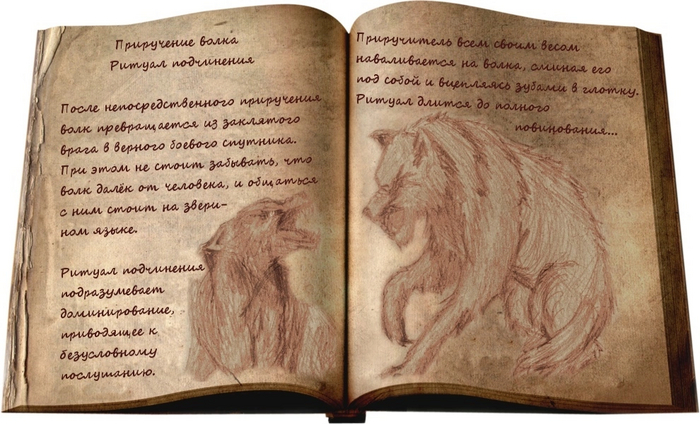 Приручение волка
Ритуал подчинения
После непосредственного приручения
волк превращается из заклятого
врага в верного боевого спутника.
При этом не стоит забывать, что
волк далёк от человека, и общаться
с ним стоит на звери-
ном языке.
Ритуал подчинения
подразумевает
доминирование,
приводящее к
безусловному
послушанию.
Приручитель всем своим весом
наваливается на волка, сминая его
под собой и вцепляясь зубами в глотку.
Ритуал длится до полного
повинования...